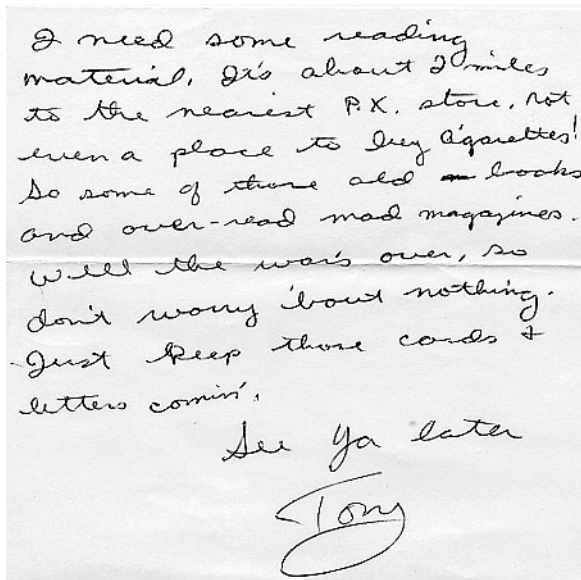 I need some reading
material. It's about 2 miles
to the nearest P.X. store, not
even a place to buy cigarettes!
So some of those old books
and over-read mad magazines.
Well the war's over, so
don't worry 'bout nothing.
Just keep those cards &
letters comin'.
See Ya later
Tony